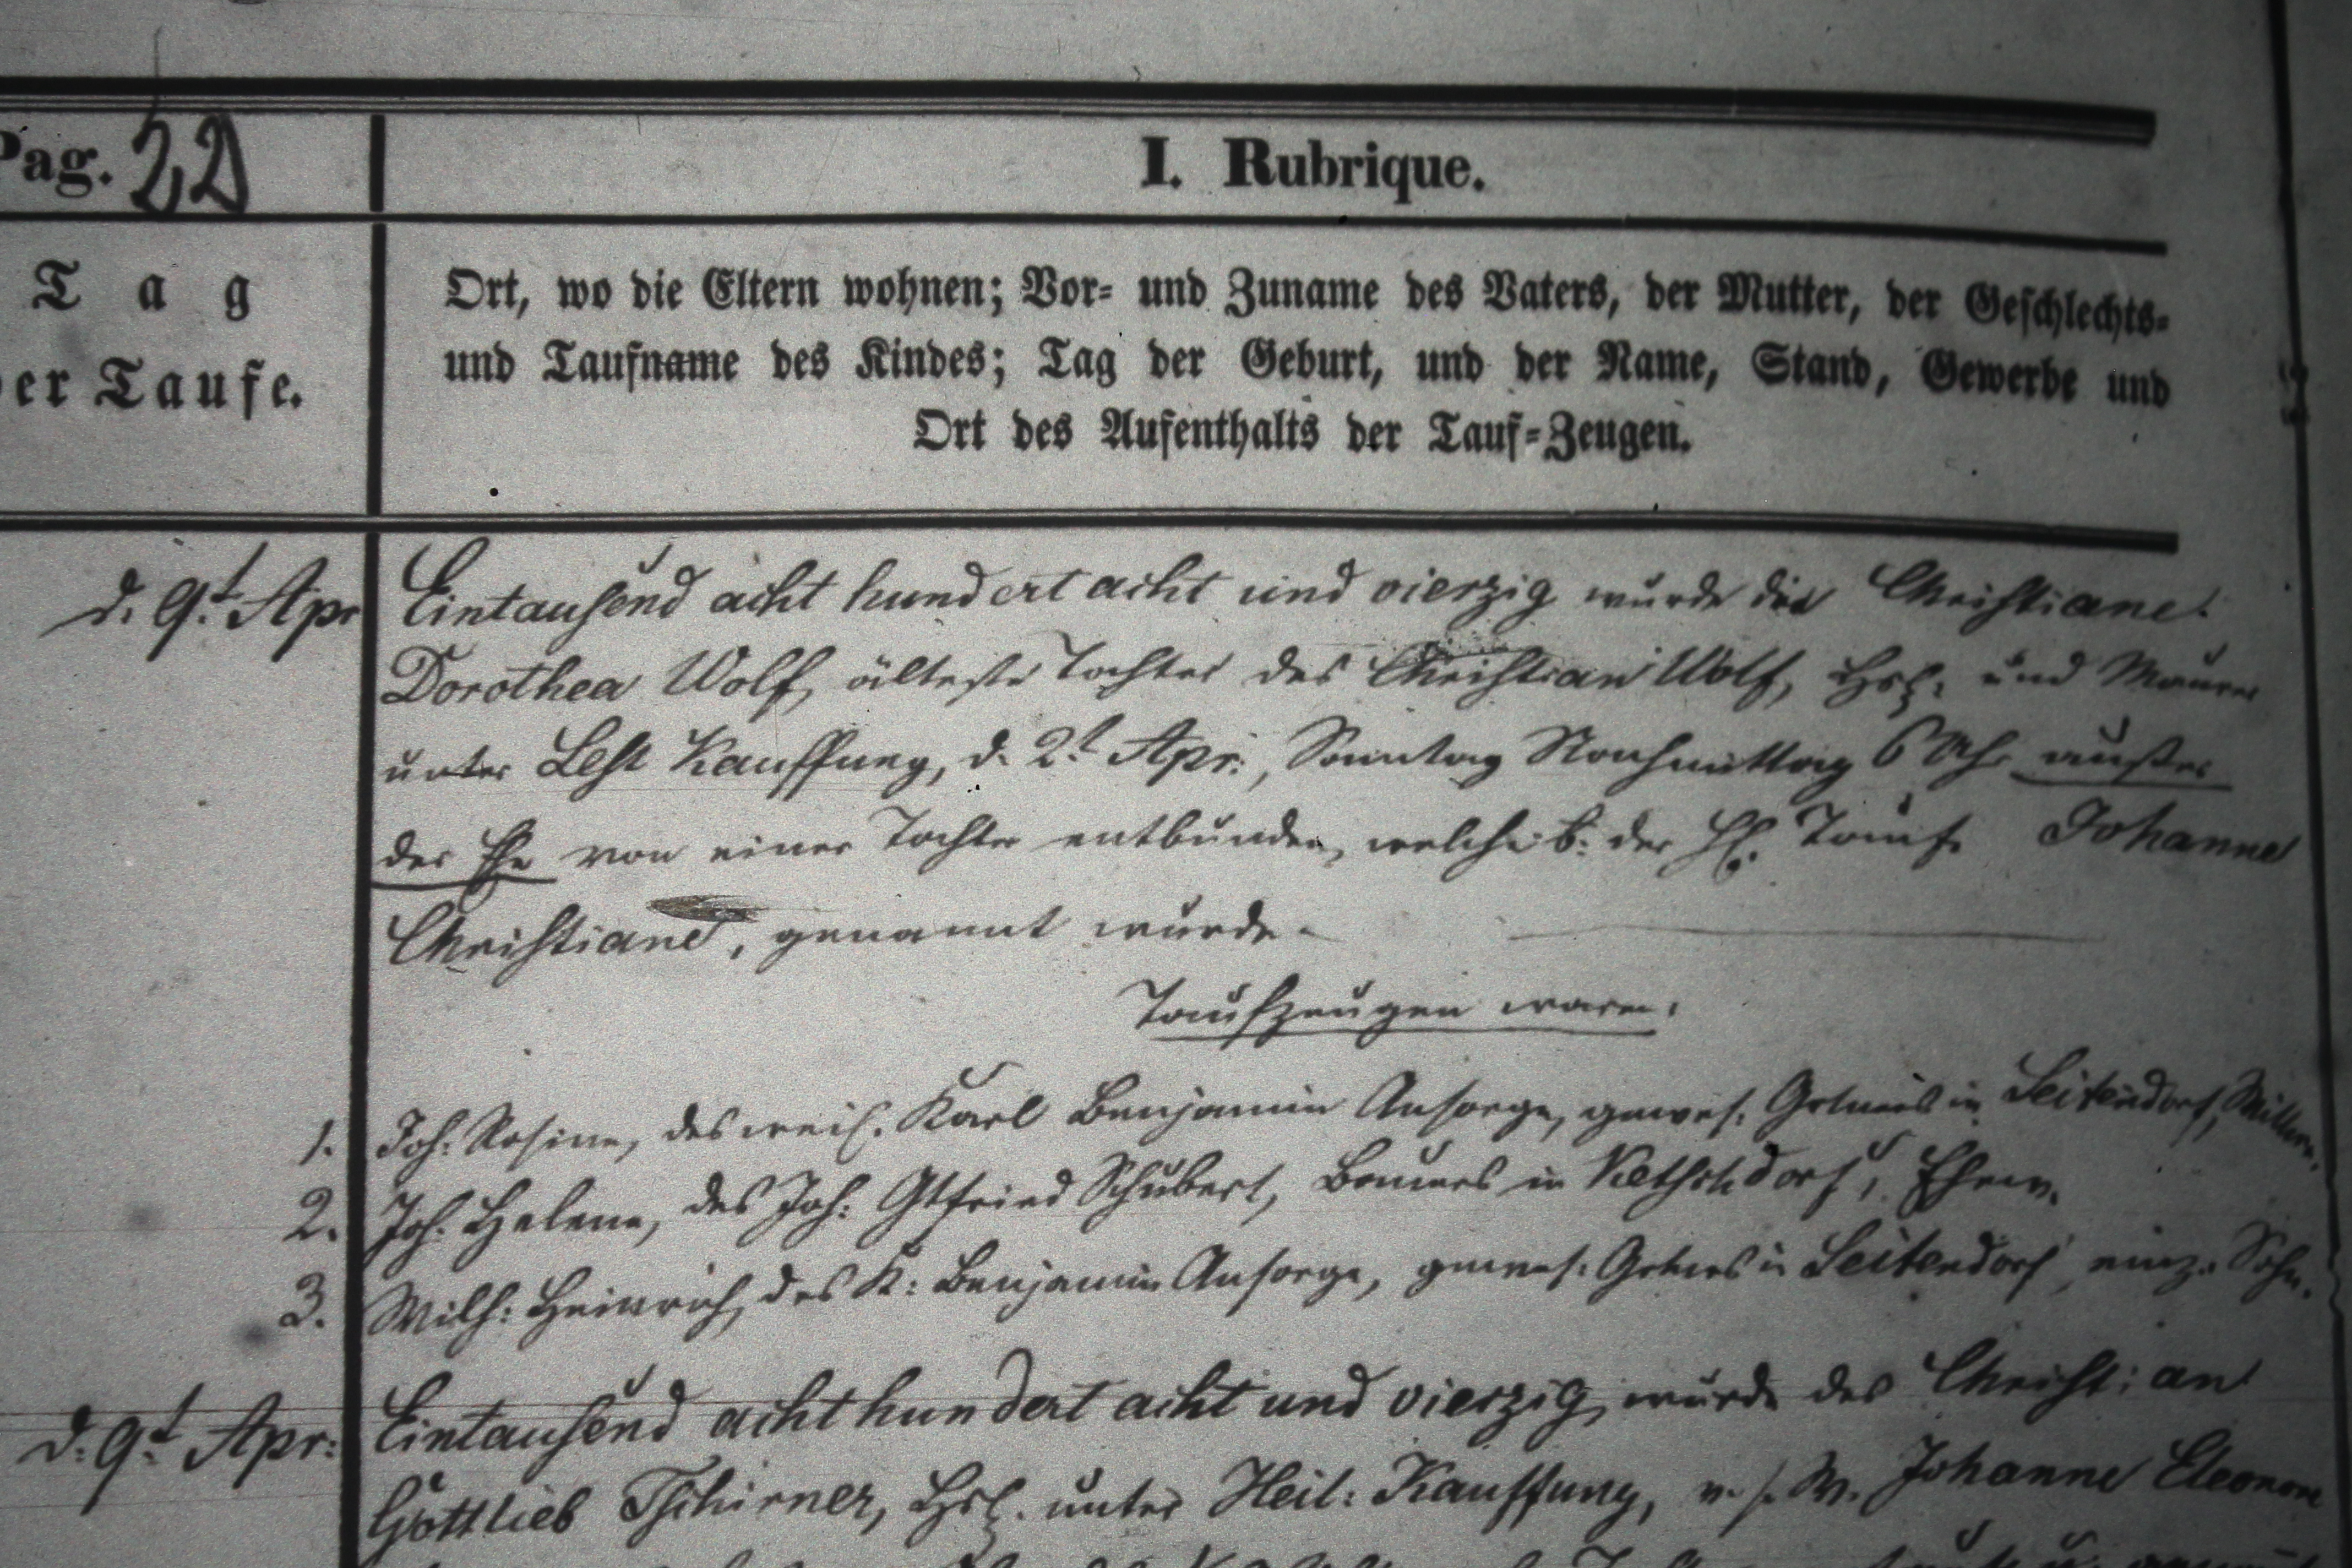 Pag. 22
I. Rubrique.
Tag
der Taufe.
Ort, wo die Eltern wohnen; Vor- und Zuname des Vaters, der Mutter, der Geschlechts-
und Taufname des Kindes; Tag der Geburt, und der Name, Stand, Gewerbe und
Ort des Aufenthalts der Tauf-Zeugen.
d. 9t. Apr Eintausend acht hundert acht und vierzig wurde die Christiane
Dorothea Wolf, älteste Tochter des Christian Wolf, Hsl. und Maurer
unter Lest Kauffung, d. 2t. Apr:, Sonntag Nachmittag 6 Uhr außer
der Ehe von einer Tochter entbunden, welche b. der Hl. Taufe Johanne
Christiane, genannt wurde.
Taufzeugen waren:
1. Joh: Rosine, des weil. Karl Benjamin Ansorge, gewes. Grtners in Seitendorf, Wittwe.
2. Joh: Helene, des Joh: Gtfried Schubert, Bauers in Ketschdorf, Ehew.
3. Wilh: Heinrich, des K: Benjamin Ansorge, gewes: Grtners in Seitendorf einz. Sohn.
d. 9t. Apr: Eintausend acht hundert acht und vierzig, wurde des Christian
Gottlieb Tschirner, Hsl. unter Heil: Kauffung, v. s. W. Johanne Eleonore